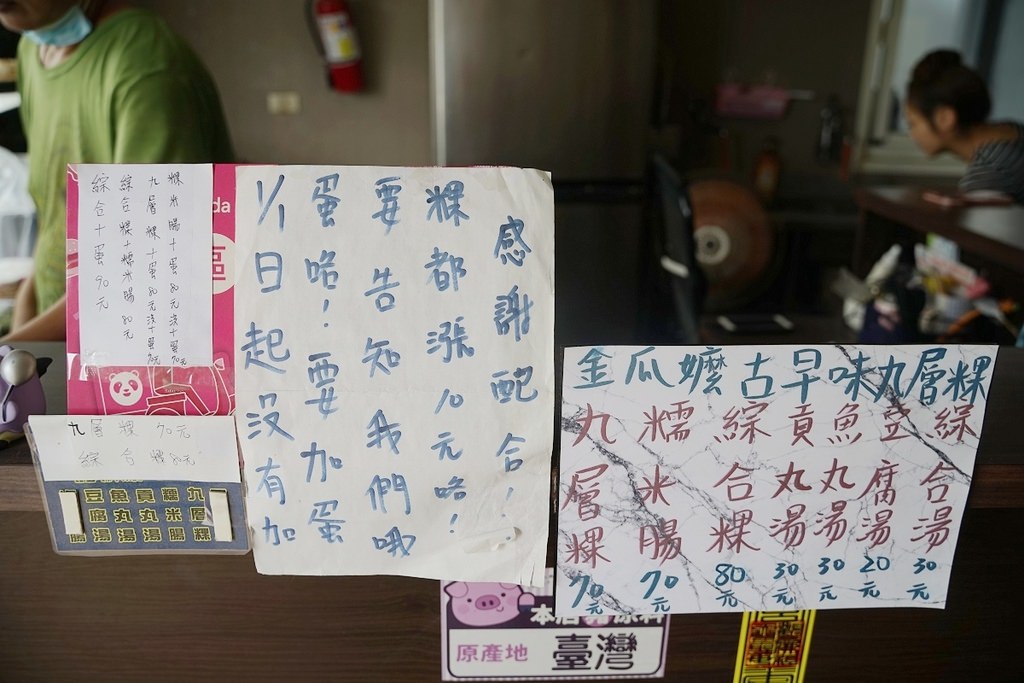 粿米腸十蛋80元沒十蛋70元
九層粿十蛋80元沒十蛋70元
綜合粿十粿米腸80元
綜合十蛋90元
da
區
九層粿 70元
綜合粿80元
九層粿
糯米腸
貢丸湯
魚丸湯
豆腐湯
1/1日起沒有加
蛋咯!要加蛋
要告知我們哦
粿都漲10元咯!
感謝配合!
金瓜嬤古早味九層粿
九層粿70元
糯米腸70元
綜合粿80元
貢丸湯30元
魚丸湯30元
豆腐湯20元
綜合湯30元
本店
原料
原產地 臺灣